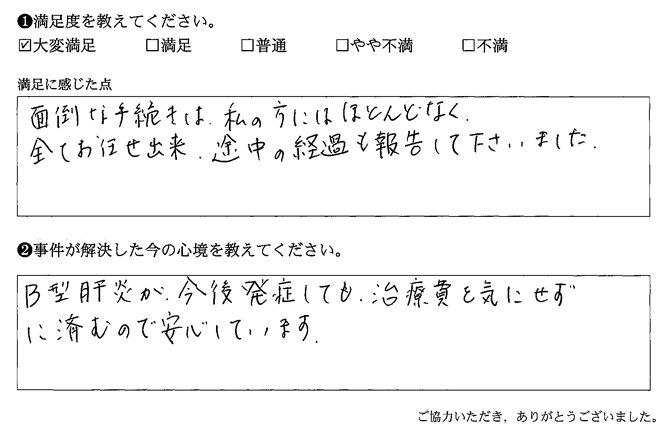 ❶満足度を教えてください。
☑大変満足 □満足 □普通 □やや不満 □不満
満足に感じた点
面倒な手続きは、私の方にはほとんどなく、
全てお任せ出来、途中の経過も報告して下さいました。
❷事件が解決した今の心境を教えてください。
B型肝炎が、今後発症しても、治療費を気にせず
に済むので安心しています。
ご協力いただき，ありがとうございました。